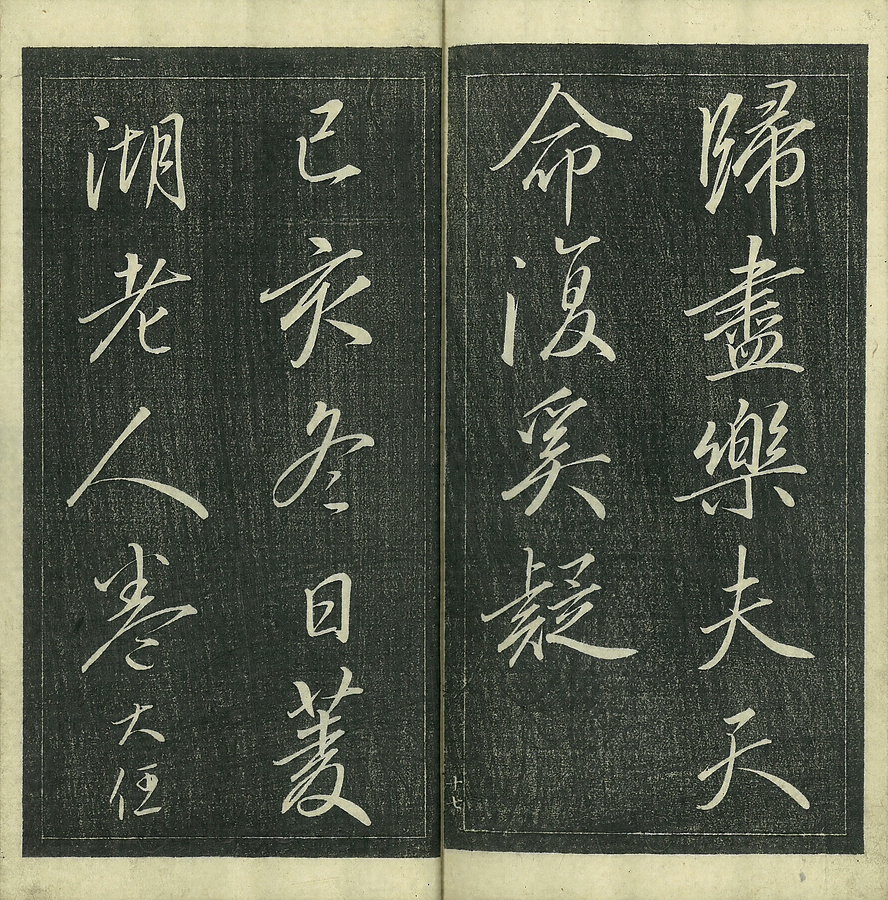 歸盡樂夫天
命復奚疑
十七
己亥冬日菱
湖老人卷大任